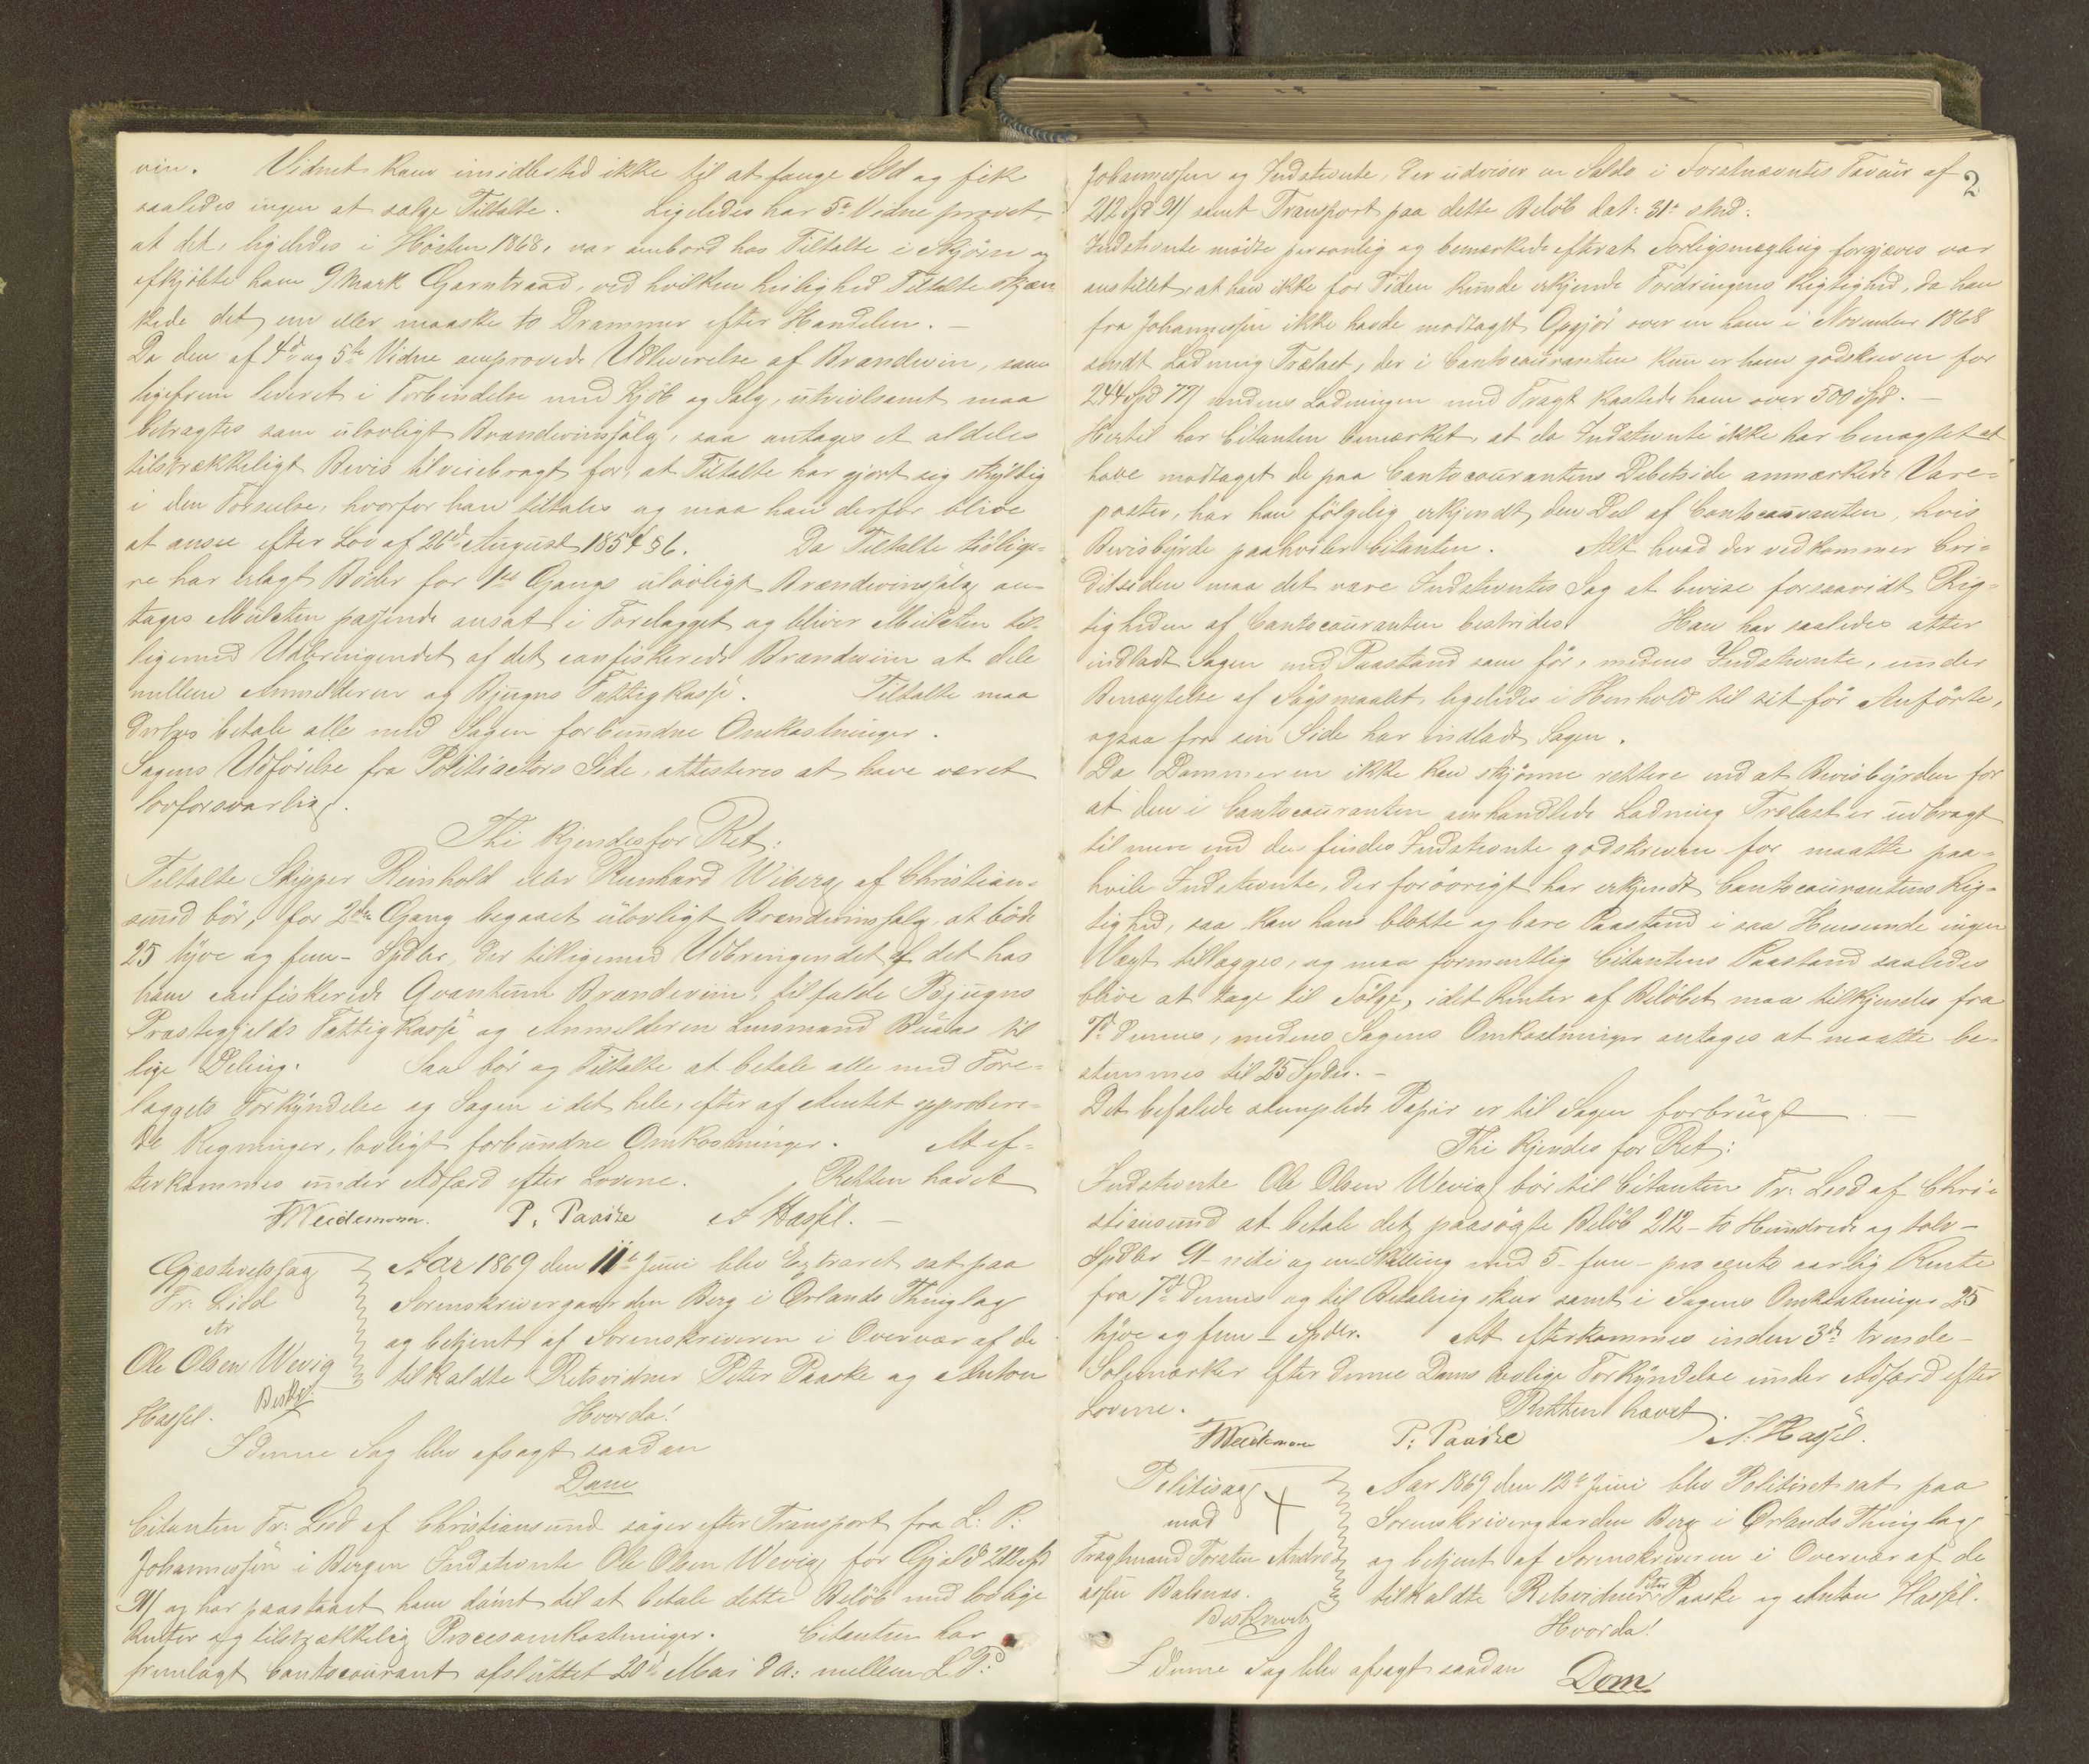 vin. Vidnet kom imidlertid ikke til at fange Sild og fik
saaledes ingen at sælge Tiltalte. Ligeledes har 5te Vidne provet
at det, ligeledes i Høsten 1868, var ombord hos Tiltalte i Skjörn og
afkjöbte ham 9 Mark Garntraad, ved hvilken Leilighed Tiltalte skjæn-
kede det en eller maaske to Drammer efter Handelen. —
Da den af 4de og 5te Vidne omprovede Udleverelse af Brændevin, som
ligefrem leveret i Forbindelse med Kjöb og Salg, utvivlsomt maa
betragtes som ulovligt Brændevinssalg, saa antages et aldeles
tilstrækkeligt Bevis tilveiebragt for, at Tiltalte har gjort sig skyldig
i den Forseelse, hvorfor han tiltales og maa han derfor blive
at ansee efter Lov af 26de August 1854 § 6. Da Tiltalte tidlige-
re har erlagt Böder for 1ste Gangs ulovligt Brændevinssalg an-
tages Mulcten passende ansat i Forelægget og bliver Mulcten til-
ligemed Udbringendet af det confiskerede Brændeviin at dele
mellem Anmelderen og Bjugns Fattigkasse. Tiltalte maa
derhos betale alle med Sagen forbundne Omkostninger.
Sagens Udförelse fra Politiactors Side, attesteres at have været
lovforsvarlig.
Thi kjendes for Ret:
Tiltalte Skipper Reinhold eller Reinhard Wiberg af Christian-
sund bör, for 2den Gang begaaet ulovligt Brændevinssalg at böde
25 tyve og fem - Spdlr, der tilligemed Udbringendet af det hos
ham confiskerede Qvantum Brændeviin, tilfalde Bjugns
Præstegjelds Fattigkasse og Anmelderen Lensmand Buaas til
lige Deling. Saa bör og Tiltalte at betale alle med Fore-
læggets Forkyndelse og Sagen i det hele, efter af Amtet approbere-
de Regninger, lovligt forbundne Omkostninger. At ef-
terkommes under Adfærd efter Lovene. Retten hævet
FWeidemann. P. Paaske A Hassel. —
Gjæsteretssag
Fr: Liöd
ctr
Ole Olsen Wevig
Beskr:
Aar 1869 den 11te Juni blev Extraret sat paa
Sorenskrivergaarden Berg i Ørlands Thinglag
og betjent af Sorenskriveren i Overvær af de
tilkaldte Retsvidner Peter Paaske og Anton
Hassel.
Hvorda!
I denne Sag blev afsagt saadan
Dom
Citanten Fr: Liöd af Christiansund söger efter Transport fra L: P:
Johannessen i Bergen Indstevnte Ole Olsen Wevig for Gjæld 212 Spd
91 og har paastaaet ham dömt til at betale dette Belöb med lovlige
Renter og tilstrækkelig Procesomkostninger. Citanten har
fremlagt Contocourant afsluttet 20de Mai d A: mellem L P:
2
Johannessen og Indstevnte, der udviser en Saldo i Förstnævntes Faveur af
212 Spd 91 samt Transport paa dette Belöb dat: 31te s. Md:
Indstevnte mödte personlig og bemærkede efterat Forligsmægling forgjæves var
anstillet, at han ikke for Tiden kunde erkjende Fordringens Rigtighed, da han
fra Johannessen ikke havde modtaget Opgjör over en ham i November 1868
sendt Ladning Trælast, der i Contocouranten kun er ham godskreven for
244 Spd 77 medens Ladningen med Fragt kostede ham over 500 Spd. —
Hertil har Citanten bemærket, at da Indstevnte ikke har benægtet at
have modtaget de paa Contocourantens Debetside anmærkede Vare-
poster, har han fölgelig erkjendt den Del af Contocouranten, hvis
Bevisbyrde paahviler Citanten. Alt hvad der vedkommer Cre-
ditsiden maa det være Indstevntes Sag at bevise forsaavidt Rig-
tigheden af Contocouranten bestrides. Han har saaledes atter
indladt Sagen med Paastand som för, medens Indstevnte, under
Benægtelse af Sögsmaalet, ligeledes i Henhold til sit för Anförte,
ogsaa fra sin Side har indladt Sagen.
Da Dommeren ikke kan skjönne rettere end at Bevisbyrden for
at den i Contocouranten omhandlede Ladning Trælast er udbragt
til mere end den findes Indstevnte godskreven for maatte paa-
hvile Indstevnte, der forövrigt har erkjendt Contocourantens Rig-
tighed, saa kan hans blotte og bare Paastand i saa Henseende ingen
Vægt tillægges, og maa formentlig Citantens Paastand saaledes
blive at tage til Fölge, idet Renter af Belöbet maa tilkjendes fra
7de dennes, medens Sagens Omkostninger antages at maatte be-
stemmes til 25 Spdlr. —
Det befalede stemplede Papir er til Sagen forbrugt —
Thi kjendes for Ret:
Indstevnte Ole Olsen Wevig bör til Citanten Fr: Liöd af Chri-
stiansund at betale det paasögte Belöb 212 - to Hundrede og tolv -
Spdlr 91 niti og en Skilling med 5 - fem - procents aarlig Rente
fra 7de dennes og til Betaling skeer samt i Sagens Omkostninger 25
tyve og fem - Spdlr. At efterkommes inden 3de trende -
Solemærker efter denne Doms lovlige Forkyndelse under Adfærd efter
Lovene. Retten hævet.
FWeidemann P: Paaske A. Hassel.
Politisag
mod
Fragtmand Torsten Andre-
assen Balsnes.
Beskrevet
Aar 1869 den 12te Juni blev Politiret sat paa
Sorenskrivergaarden Berg i Ørlands Thinglag
og betjent af Sorenskriveren i Overvær af de
tilkaldte Retsvidner Peter Paaske og Anton Hassel.
Hvorda!
I denne Sag blev afsagt saadan
Dom